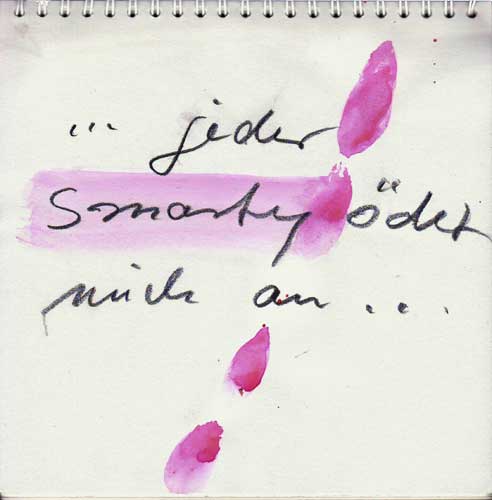 ... jeder
smarty ödet
mich an ...